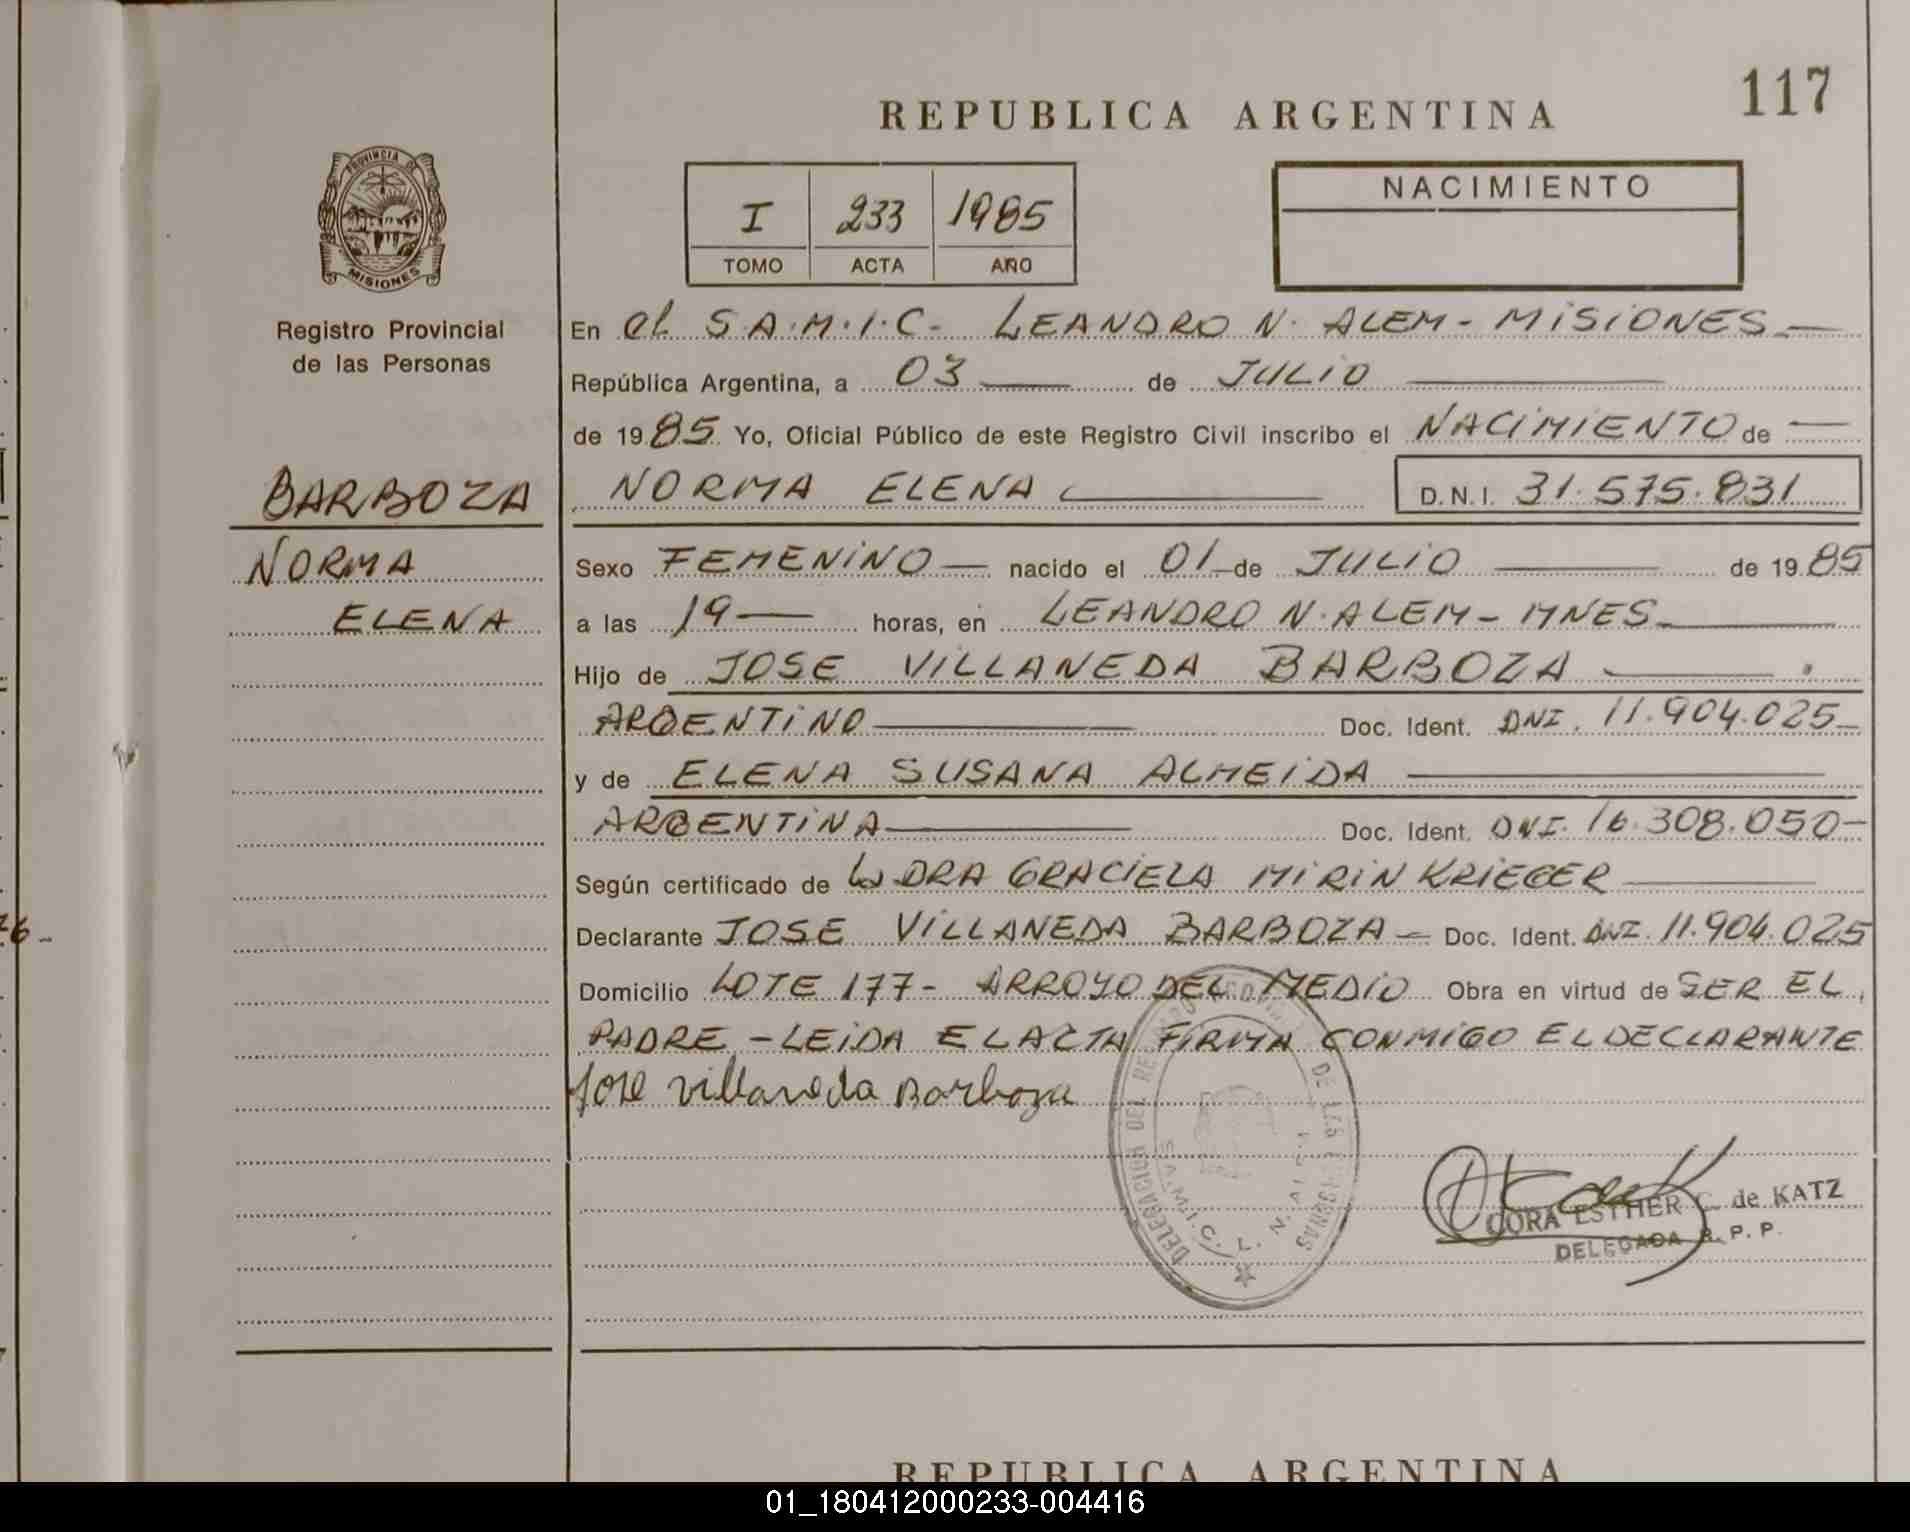 117
REPUBLICA ARGENTINA
PROVINCIA DE
MISIONES
I 233 1985
TOMO ACTA AÑO
NACIMIENTO
Registro Provincial
de las Personas
En el S.A.M.I.C- LEANDRO N. ALEM - MISIONES —
República Argentina, a 03 — de JULIO —
de 1985 Yo, Oficial Público de este Registro Civil inscribo el NACIMIENTO de —
NORMA ELENA — D.N.I. 31.575.831
BARBOZA
NORMA
ELENA
Sexo FEMENINO — nacido el 01 de JULIO — de 1985
a las 19 — horas, en LEANDRO N. ALEM - MNES —
Hijo de JOSE VILLANEDA BARBOZA — .
ARGENTINO — Doc. Ident. DNI. 11.904.025 -
y de ELENA SUSANA ALMEIDA —
ARGENTINA — Doc. Ident. DNI. 16.308.050 -
Según certificado de LA DRA GRACIELA MIRIN KRIEGER —
Declarante JOSE VILLANEDA BARBOZA - Doc. Ident. DNI. 11.904.025
Domicilio LOTE 177 - ARROYO DEL MEDIO Obra en virtud de SER EL
PADRE - LEIDA EL ACTA FIRMA CONMIGO EL DECLARANTE
Jose Villaneda Barboza
DELEGACION DEL REGISTRO DE LAS PERSONAS
S.A.M.I.C. L. N. ALEM
CORA ESTHER C. de KATZ
DELEGADA R. P. P.
26 -
REPUBLICA ARGENTINA
01_180412000233-004416